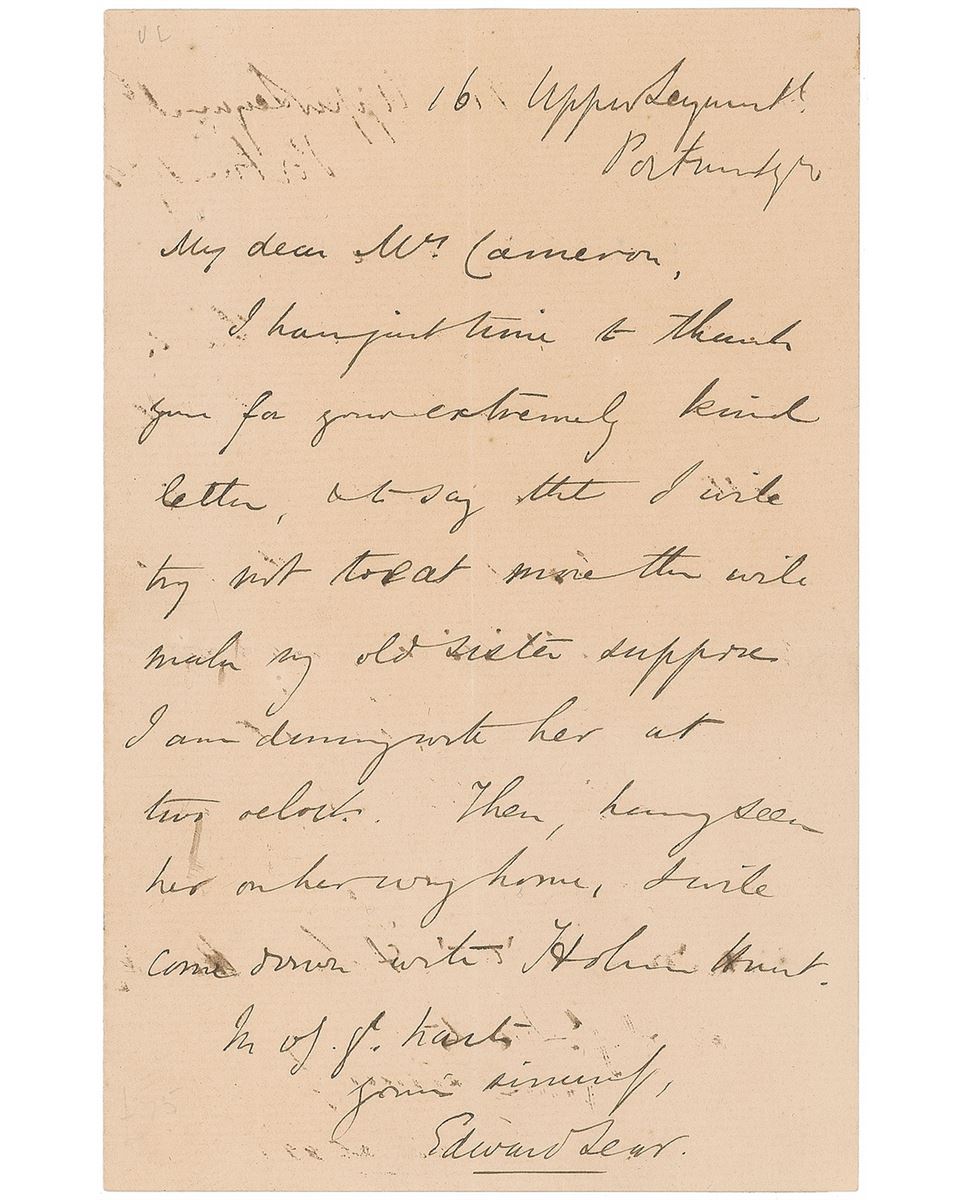 16 Upper Seymour St.
Portman Sqre
My dear Mrs. Cameron,
I have just time to thank
you for your extremely kind
letter, & to say that I will
try not to eat more than will
make my old sister suppose
I am dining with her at
two oclock. Then, having seen
her on her way home, I will
come down with Holman Hunt.
In gt. haste
yours sincerely,
Edward Lear.